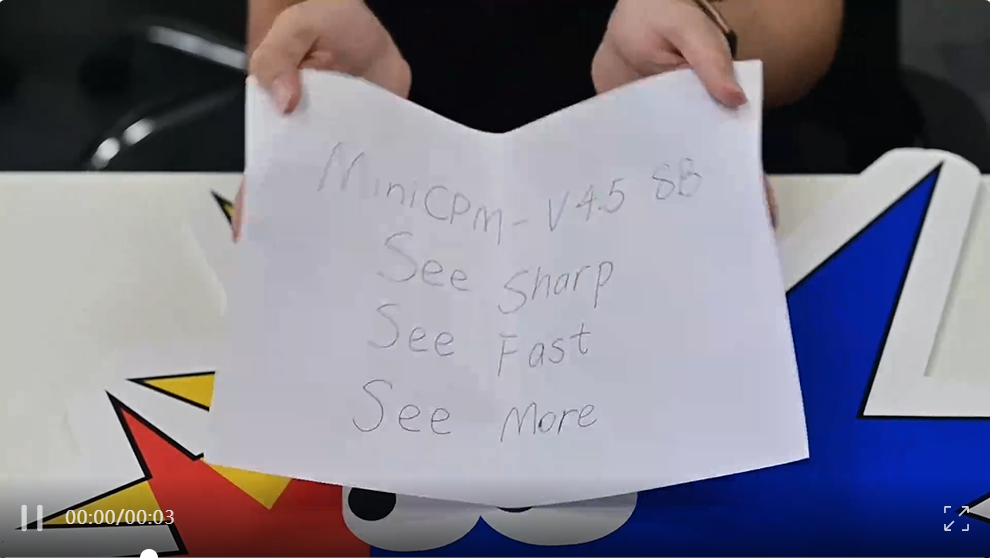 MiniCPM-V 4.5 8B
See Sharp
See Fast
See More
00:00/00:03